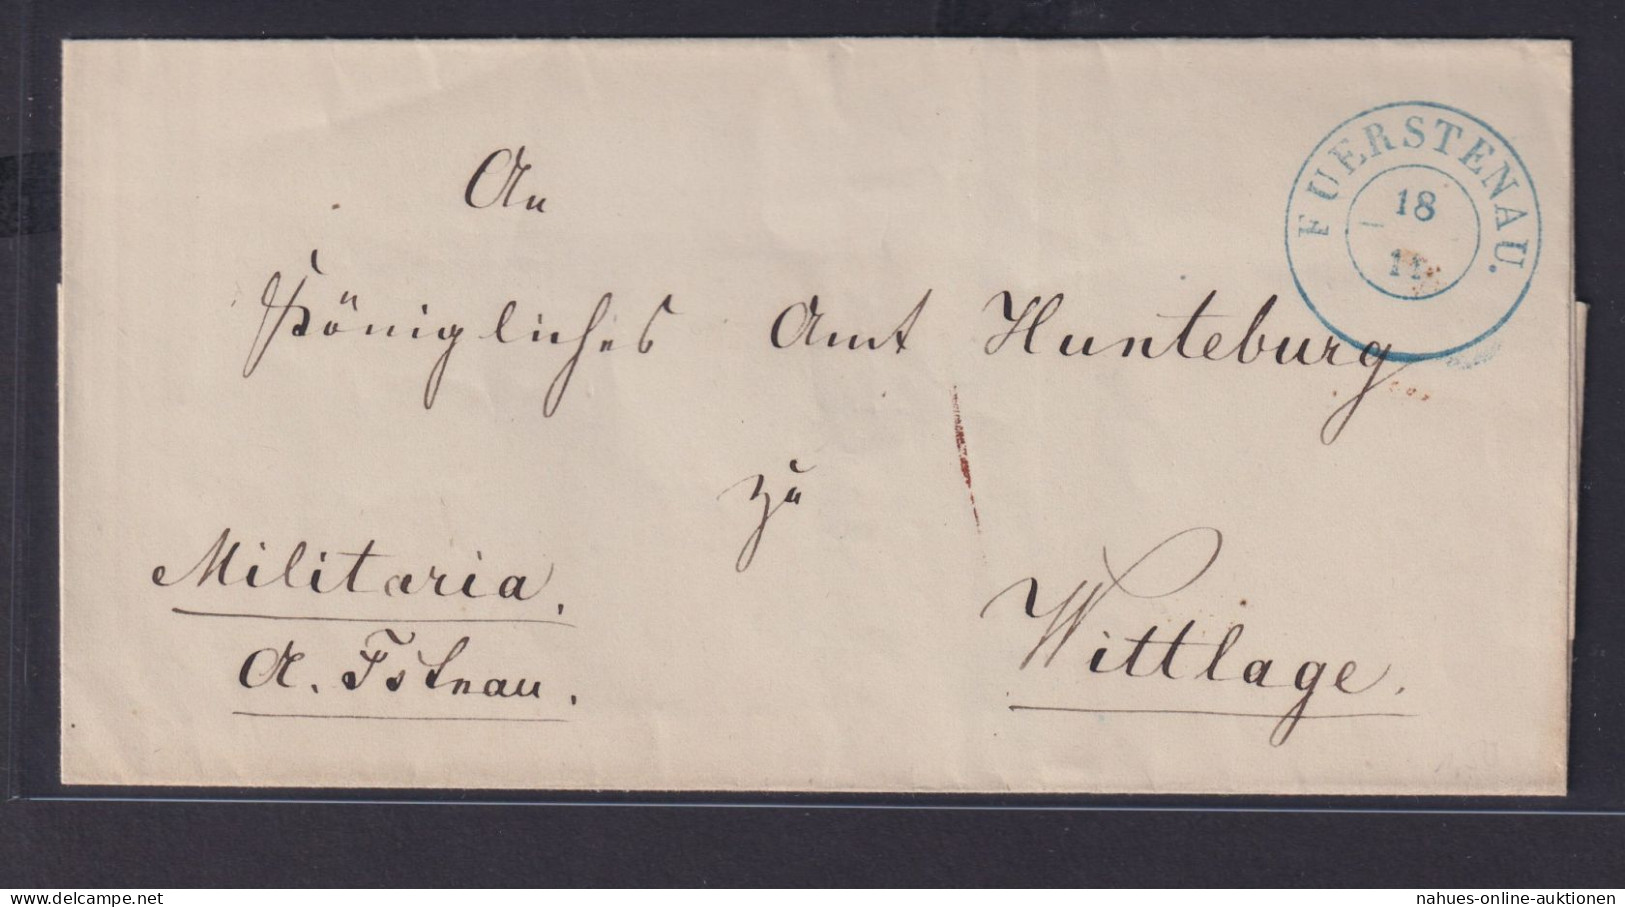 FUERSTENAU.
18
11
An
Königliches Amt Hunteburg
zu
Wittlage.
Militaria.
A. Fstnau.
nahues-online-auktionen